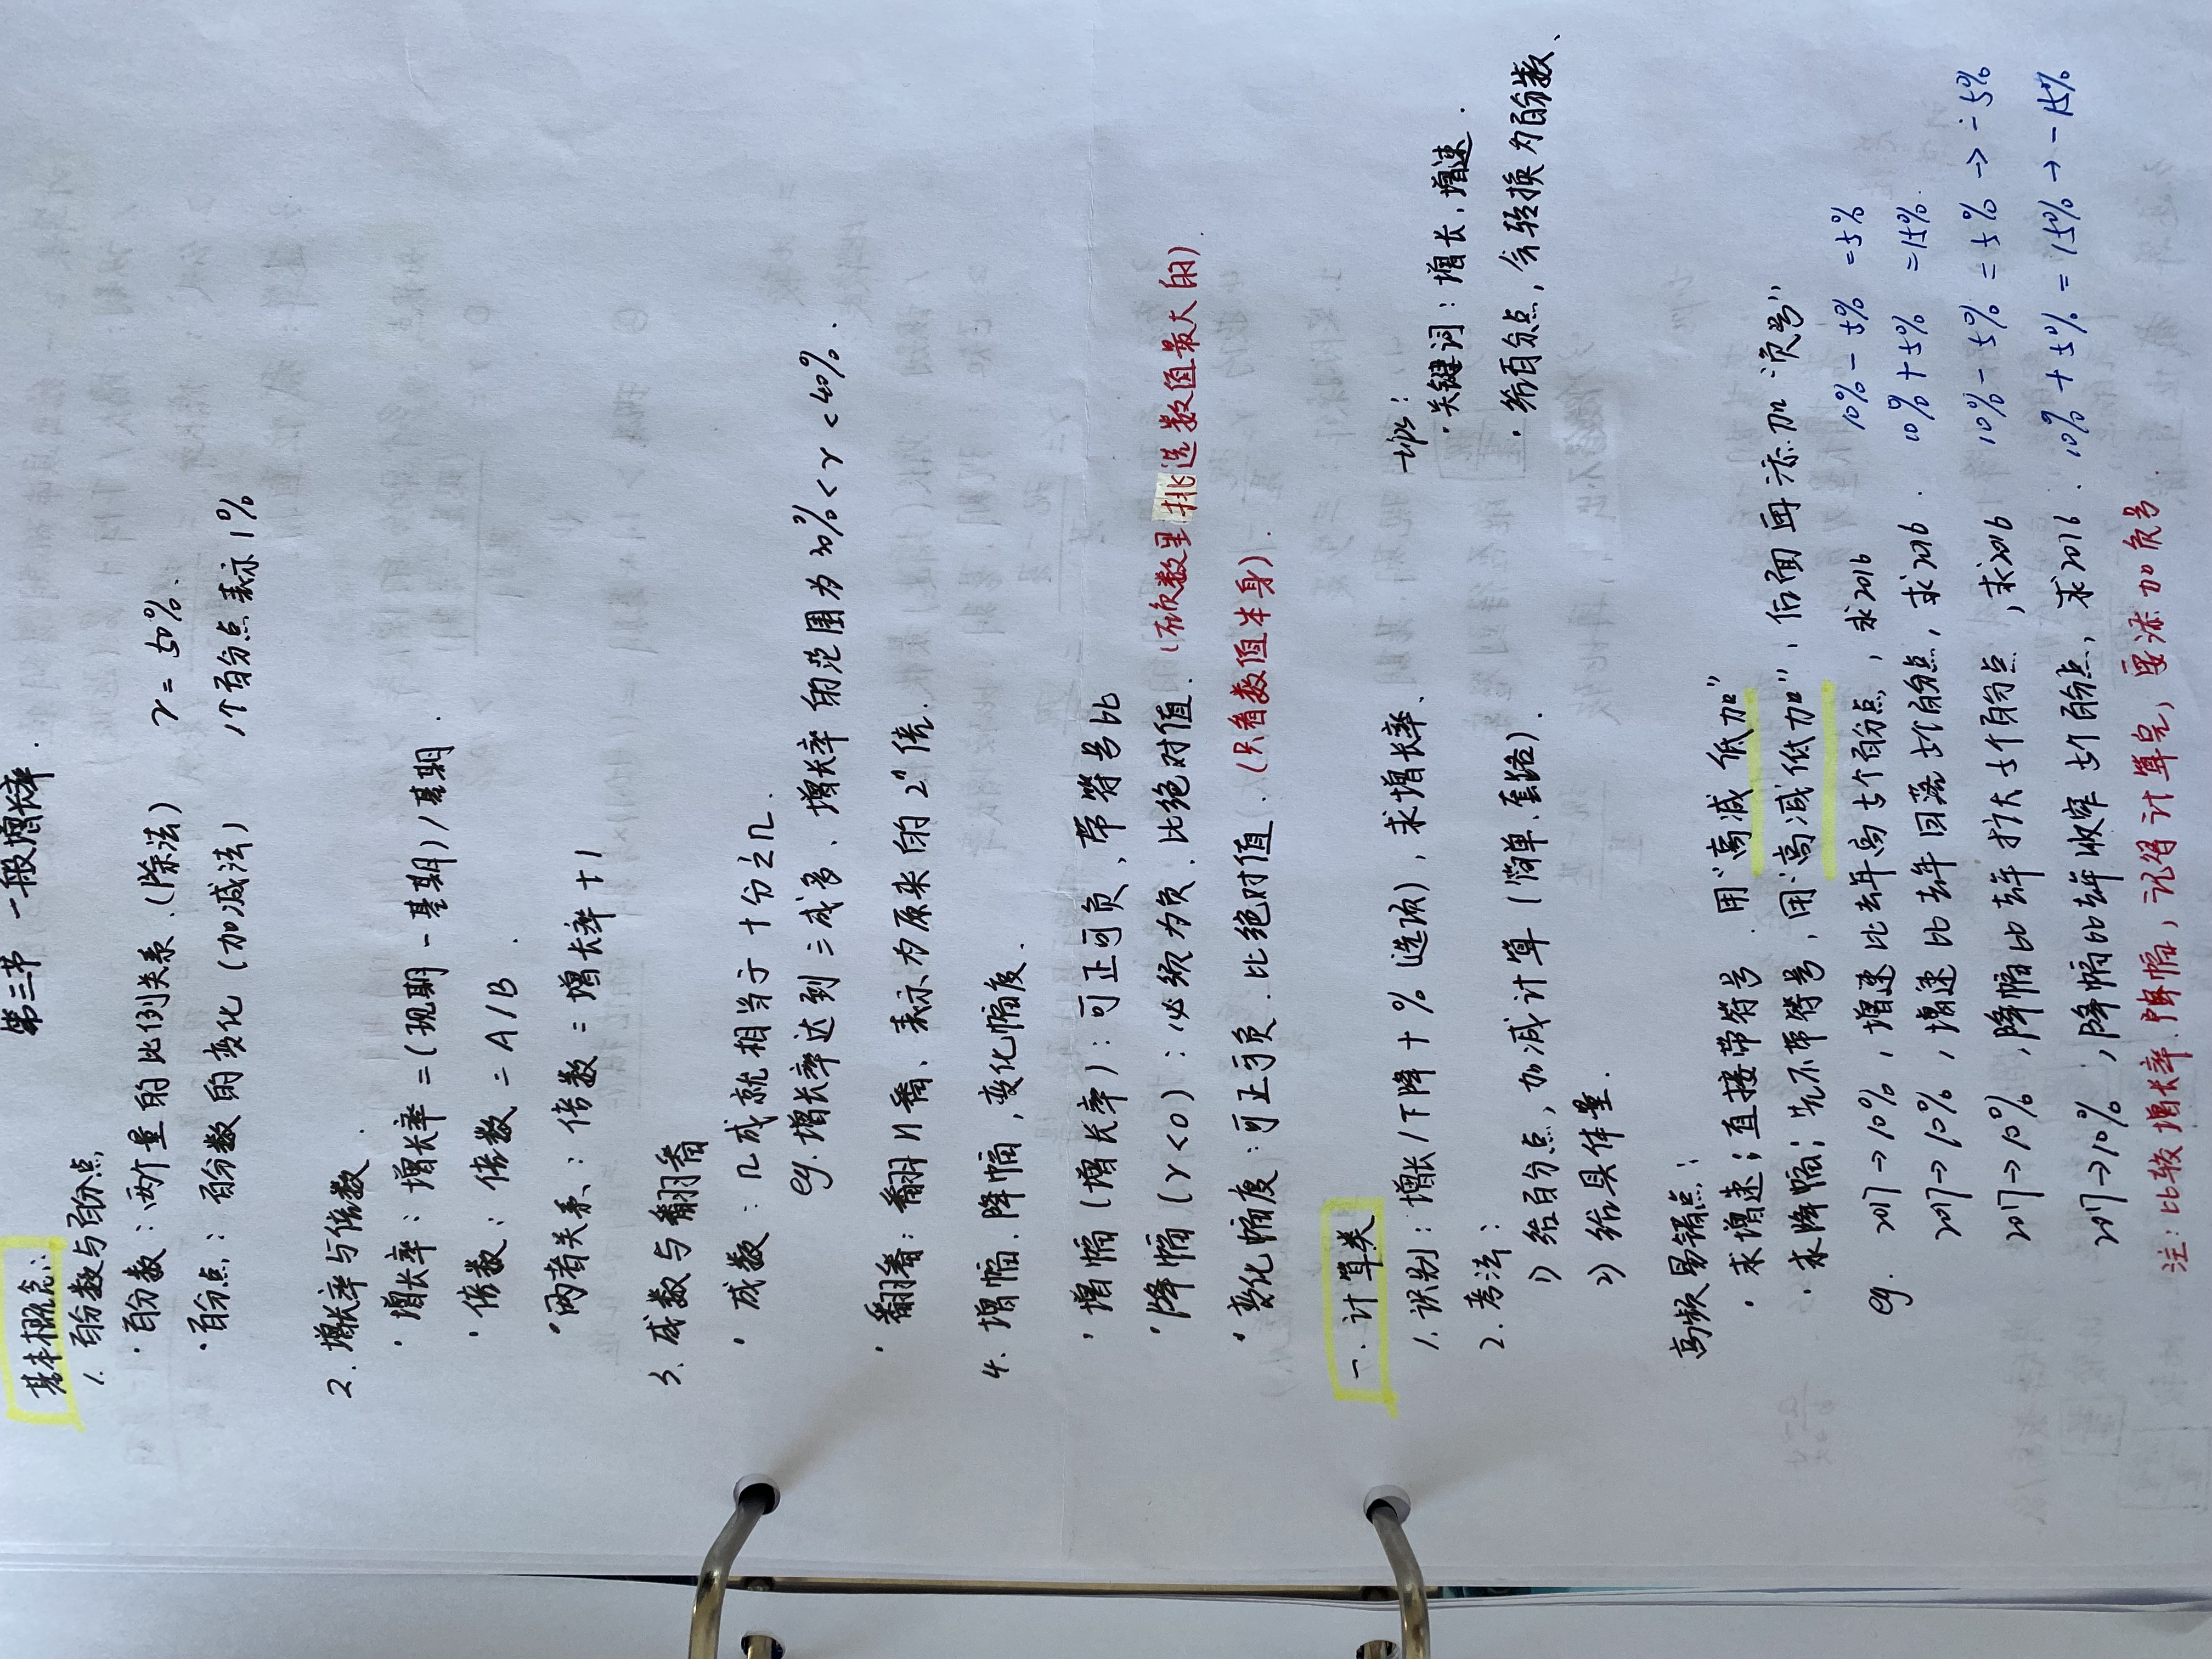 第三节 一般增长率.
基本概念:
1. 百分数与百分点
· 百分数: 两个量的比例关系.(除法) r = 50%.
· 百分点: 百分数的变化 (加减法) 1个百分点表示1%
2. 增长率与倍数.
· 增长率: 增长率 = (现期 - 基期) / 基期.
· 倍数: 倍数 = A/B.
· 两者关系: 倍数 = 增长率 + 1
3. 成数与翻番
· 成数: 几成就相当于十分之几.
eg. 增长率达到三成多、增长率的范围为 30% < r < 40%.
· 翻番: 翻n番、表示为原来的 2ⁿ 倍.
4. 增幅.降幅,变化幅度.
· 增幅 (增长率): 可正可负、带符号比
· 降幅 (r<0): 必须为负.比绝对值. (在负数里挑选数值最大的)
· 变化幅度: 可正可负.比绝对值. (只看数值本身).
一. 计算类
1. 识别: 增长/下降 + % (选项), 求增长率、
2. 考法:
1) 给百分点, 加减计算 (简单、套路).
2) 给具体量.
tips:
· 关键词: 增长,增速.
· 给百分点, 会转换为百分数、
高频易错点:
· 求增速: 直接带符号. 用“高减低加”
· 求降幅: 先不带符号, 用“高减低加”, 后面再添加“负号”
eg. 2017→10%, 增速比去年高5个百分点, 求2016 10% - 5% = 5%
2017→10%, 增速比去年回落5个百分点, 求2016. 10% + 5% = 15%.
2017→10%, 降幅比去年扩大5个百分点, 求2016 10% - 5% = 5% → -5%
2017→10%, 降幅比去年收窄5个百分点, 求2016. 10% + 5% = 15% → -15%
注: 比较增长率.降幅, 记得计算完, 要添加负号.